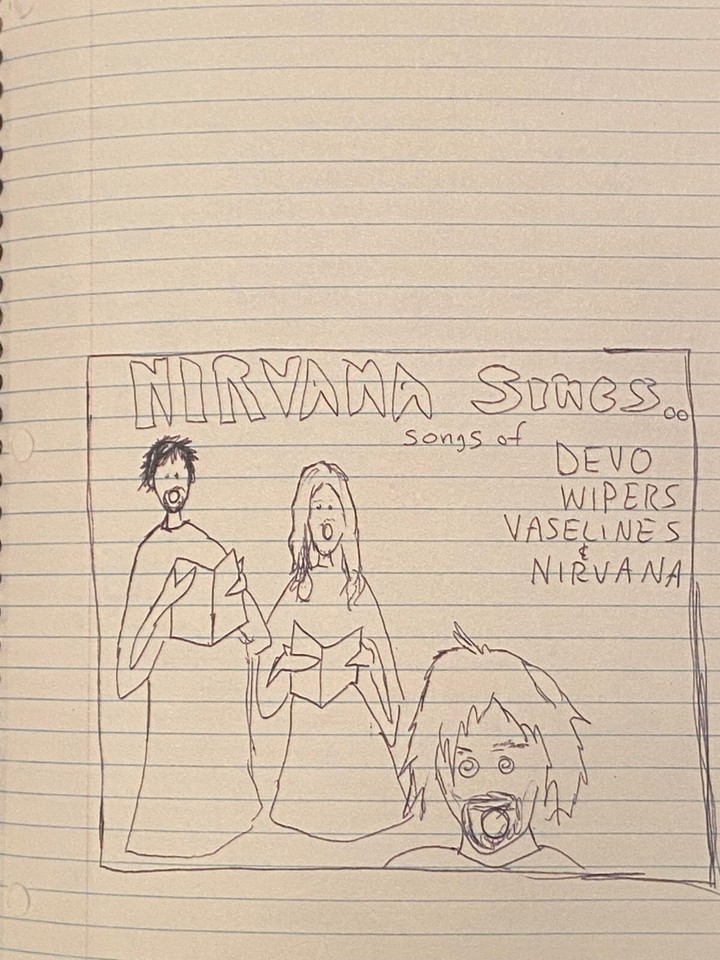 NIRVANA SINGS..
songs of
DEVO
WIPERS
VASELINES
&
NIRVANA